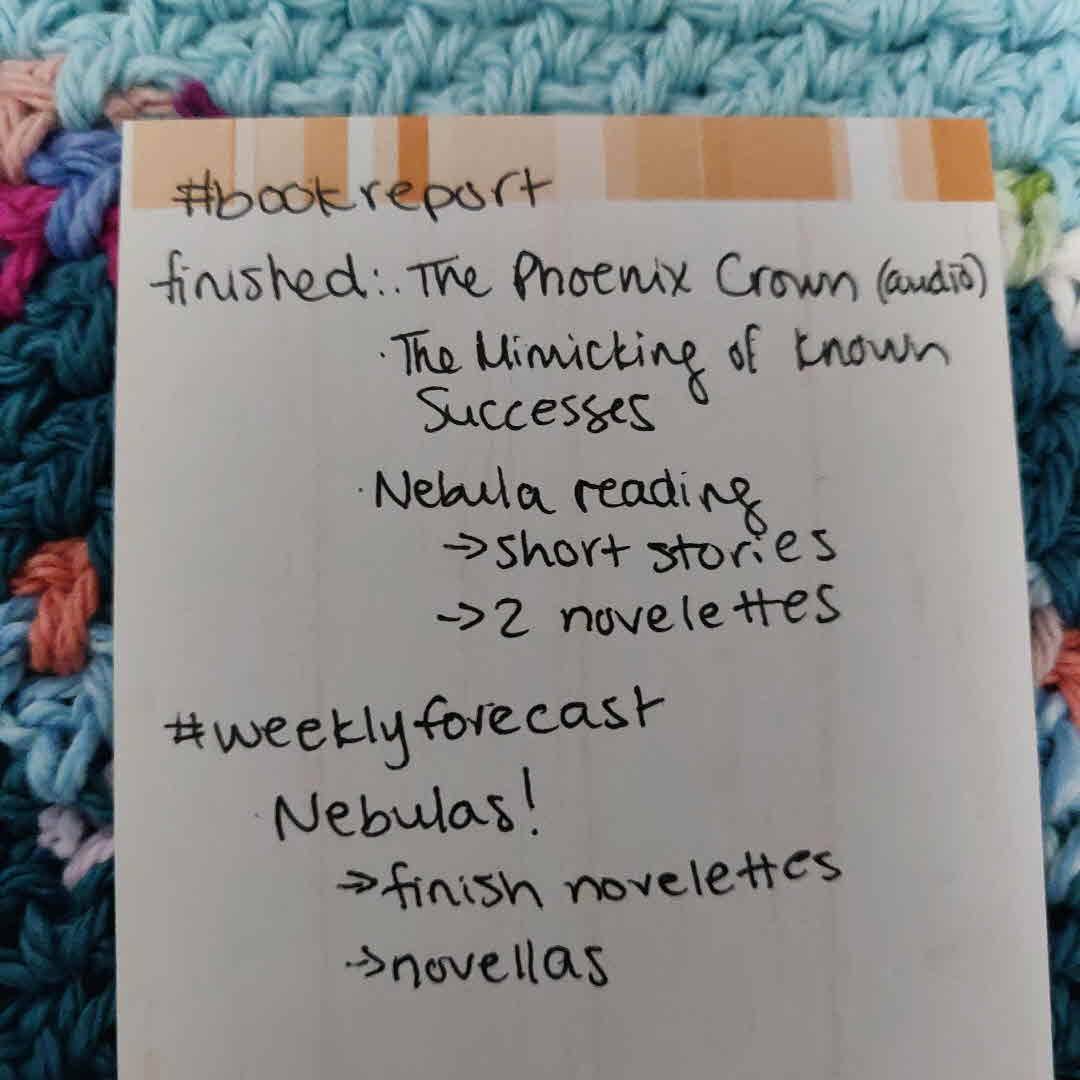 #bookreport
finished: · The Phoenix Crown (audio)
· The Mimicking of Known
Successes
· Nebula reading
→ short stories
→ 2 novelettes
#weeklyforecast
· Nebulas!
→ finish novelettes
→ novellas